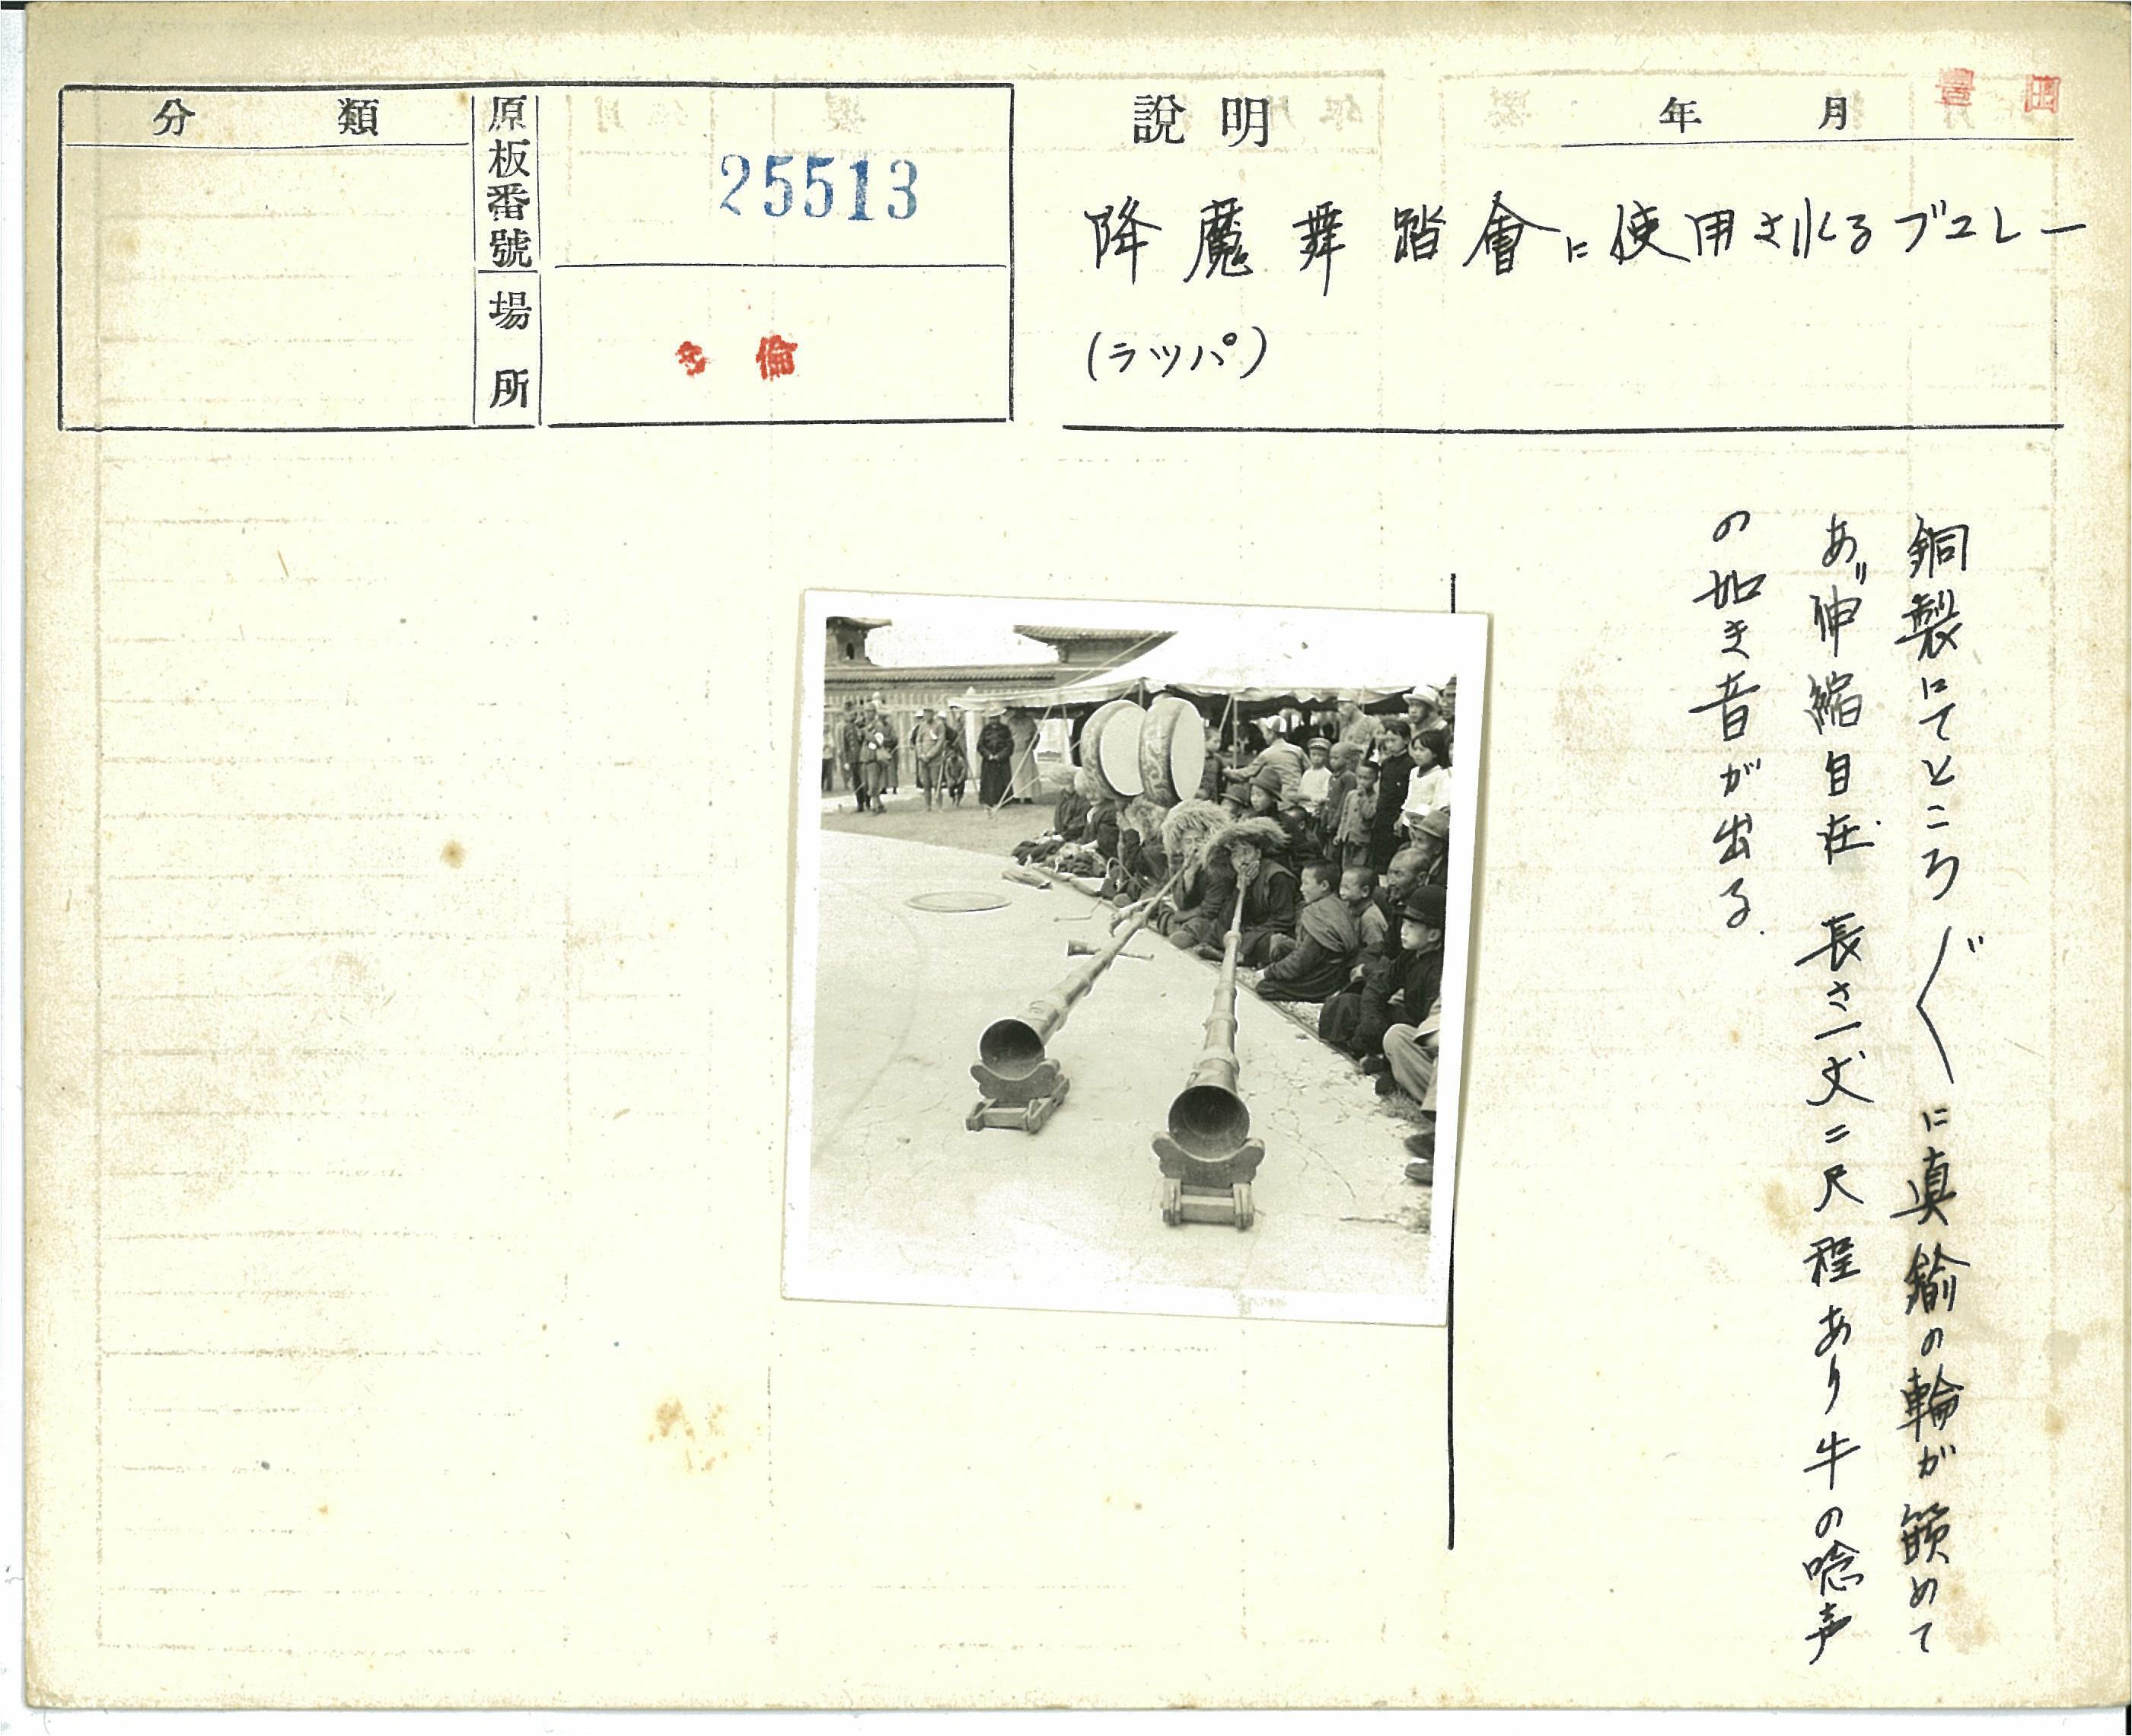 分類
原板番號
25513
場所
多倫
説明
年 月
豊田
降魔舞踏會に使用されるブユレー
(ラッパ)
銅製にてところ〲に真鍮の輪が篏めて
あり伸縮自在 長さ一丈二尺程あり牛の唸声
の如き音が出る.